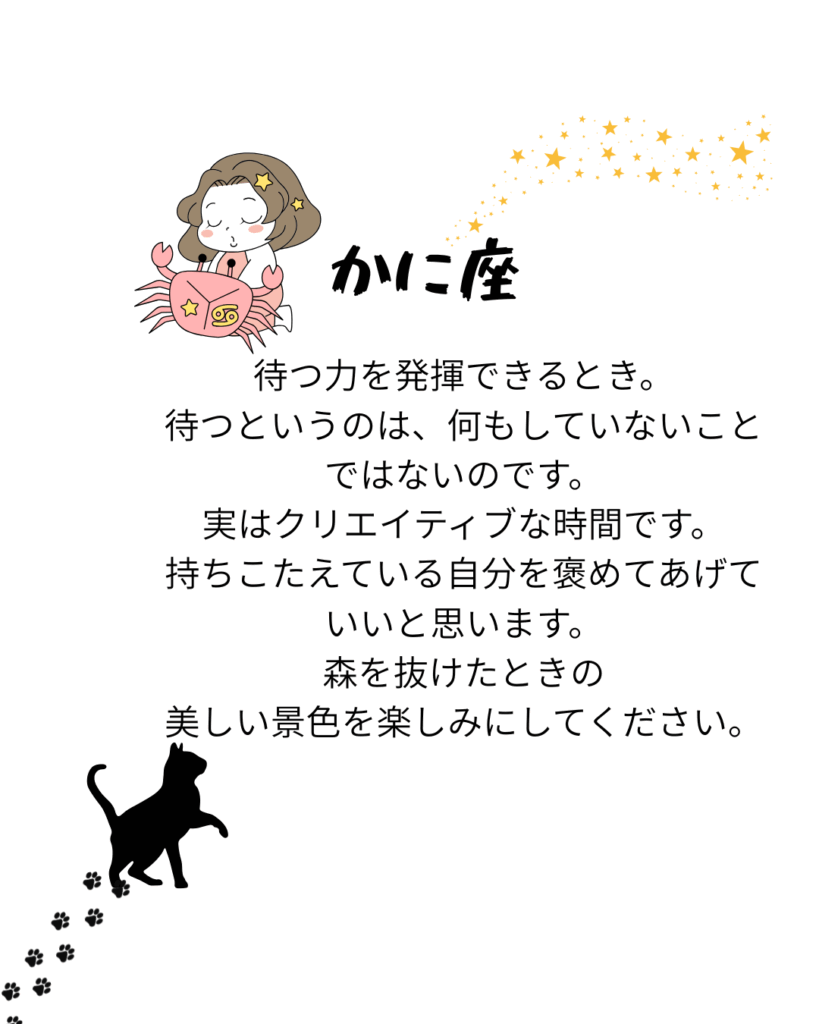 かに座
待つ力を発揮できるとき。
待つというのは、何もしていないこと
ではないのです。
実はクリエイティブな時間です。
持ちこたえている自分を褒めてあげて
いいと思います。
森を抜けたときの
美しい景色を楽しみにしてください。